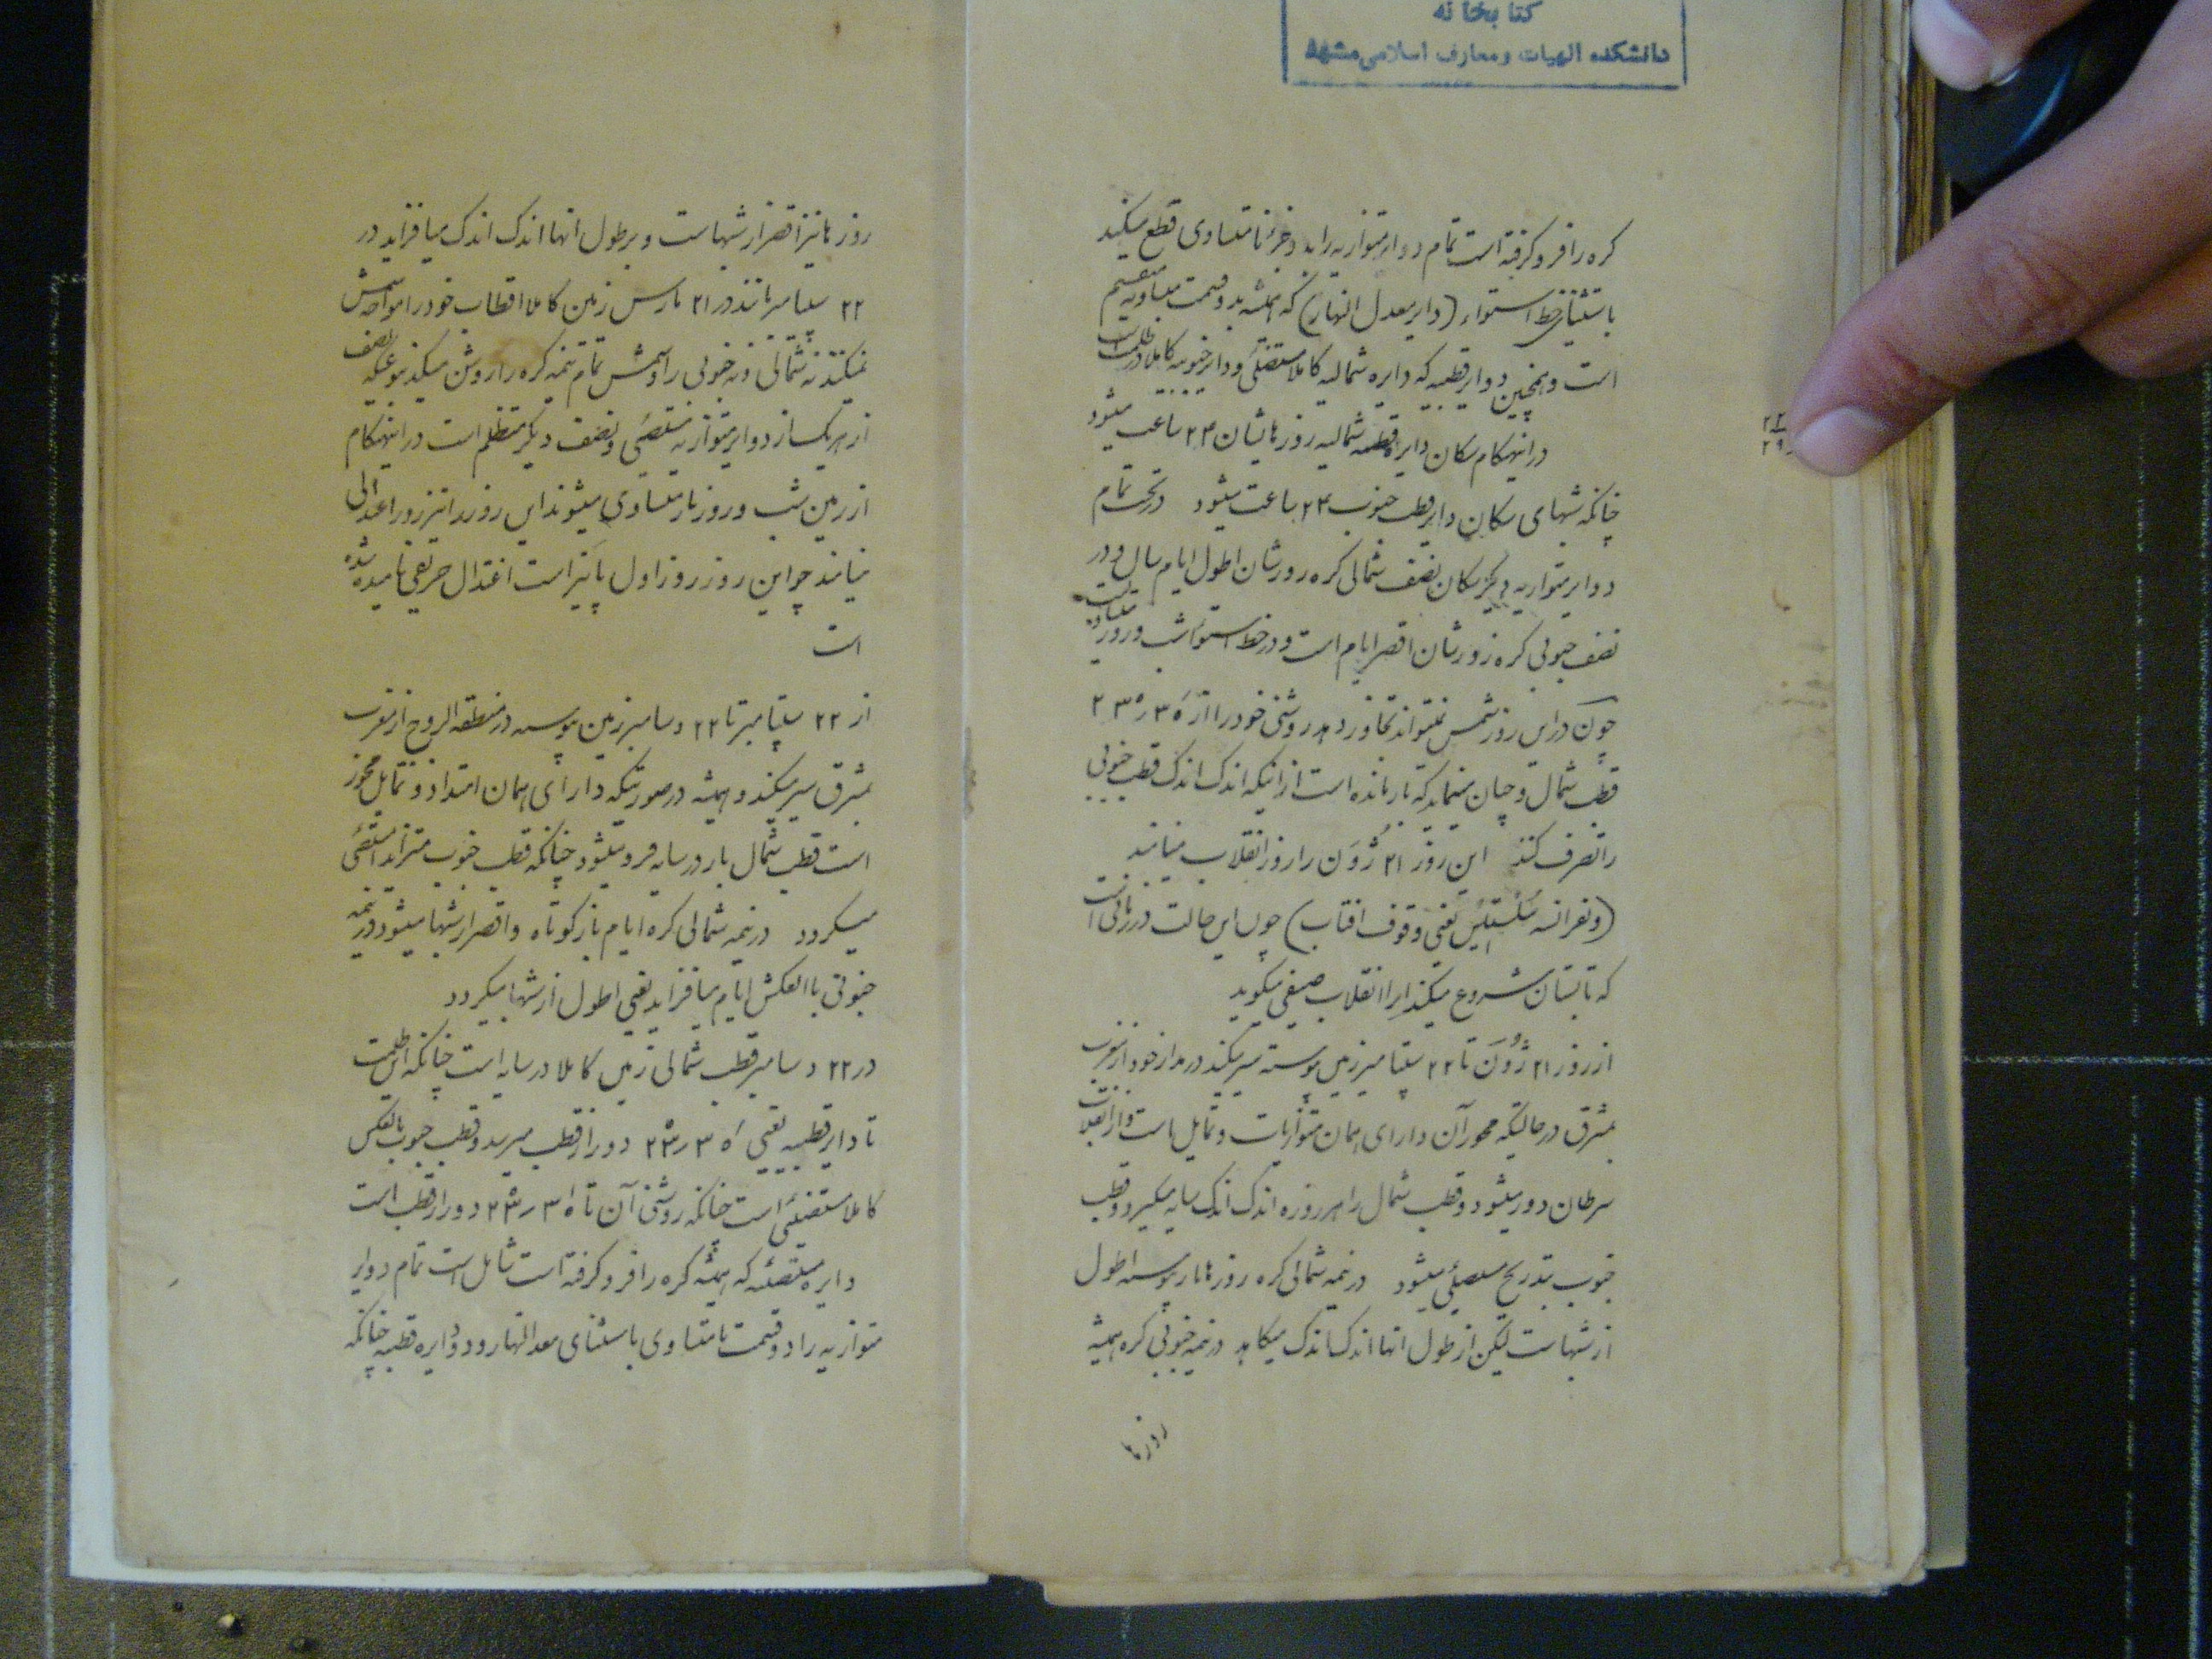 کتابخانه
دانشکده الهیات ومعارف اسلامی مشهد
کره را فرو کرفته است تمام دوایر متوازیه را بدو جزء نامتساوی قطع میکند
باستثنای خط استواء (دایر معدل النهار) که همیشه بدو قسمت متساویه منقسم
است و همچنین دوایر قطبیه که دایره شمالیه کاملا مستضئی و دایر جنوبیه کاملا در ظلمت است
در اینهنکام سکان دایره قطبیه شمالیه روزهایشان ۲۴ ساعت میشود
چنانکه شبهای سکان دایر قطب جنوب ۲۴ ساعت میشود در تحت تمام
دوایر متوازیه دیکر سکان نصف شمالی کره روزشان اطول ایام سال و در
نصف جنوبی کره روزشان اقصر ایام است و در خط استوا شب و روز متساویست
چون در این روز شمس نمیتواند تجاوز دهد روشنی خود را از ۳۵ر۲۳
قطب شمال و چنان مینماید که باز مانده است از اینکه اندک اندک قطب جنوبی
را تصرف کند این روز ۲۱ ژُوَن را روز انقلاب مینامند
(و بفرانسه سُلستیس یعنی وقوف افتاب) چون این حالت در زمانی است
که تابستان شروع میکند انرا انقلاب صیفی میکوید
از روز ۲۱ ژُوَن تا ۲۲ سپتامبر زمین پیوسته سیر میکند در مدار خود از مغرب
بمشرق در حالتیکه محور آن دارای همان متوازیات و تمایل است و از انقلاب
سرطان دور میشود و قطب شمال را هر روزه اندک اندک سایه میکیرد و قطب
جنوب بتدریج مستضئی میشود در نیمه شمالی کره روزها باز پیوسته اطول
از شبهاست لیکن از طول انها اندک اندک میکاهد در نیمه جنوبی کره همیشه
روزها
روزها نیز اقصر از شبهاست و بر طول انها اندک اندک میافزاید در
۲۲ سپتامبر مانند در ۲۱ مارس زمین کاملا اقطاب خود را مواجه شمس
نمیکند نه شمالی و نه جنوبی را و شمس تمام نیمه کره را روشن میکند بنوعیکه نصف
از هر یک از دوایر متوازیه مستضئی و نصف دیکر متظلم است در اینهنکام
از زمین شب و روز باز متساوی میشوند این روز را نیز روز اعتدالی
مینامند چو این روز روز اول پائیز است اعتدال خریفی نامیده شده
است
از ۲۲ سپتامبر تا ۲۲ دسامبر زمین پیوسته در منطقه البروج از مغرب
بمشرق سیر میکند و همیشه در صورتیکه دارای همان امتداد و تمایل محور
است قطب شمال باز در سایه فرو میشود چنانکه قطب جنوب متزاید مستضئی
میکردد در نیمه شمالی کره ایام باز کوتاه و اقصر از شبها میشود و در نیمه
جنوبی باالعکس ایام میافزاید یعنی اطول از شبها میکردد
در ۲۲ دسامبر قطب شمالی زمین کاملا در سایه است چنانکه این ظلمت
تا دایر قطبیه یعنی ۳۵ر۲۳ دور از قطب میرسد و قطب جنوب بالعکس
کاملا مستضئی است چنانکه روشنی آن تا ۳۵ر۲۳ دور از قطب است
دایره مستضئیه که همیشه کره را فرو کرفته است شامل است تمام دوایر
متوازیه را دو قسمت نامتساوی باستثنای معدالنهار و دو دایره قطبیه چنانکه